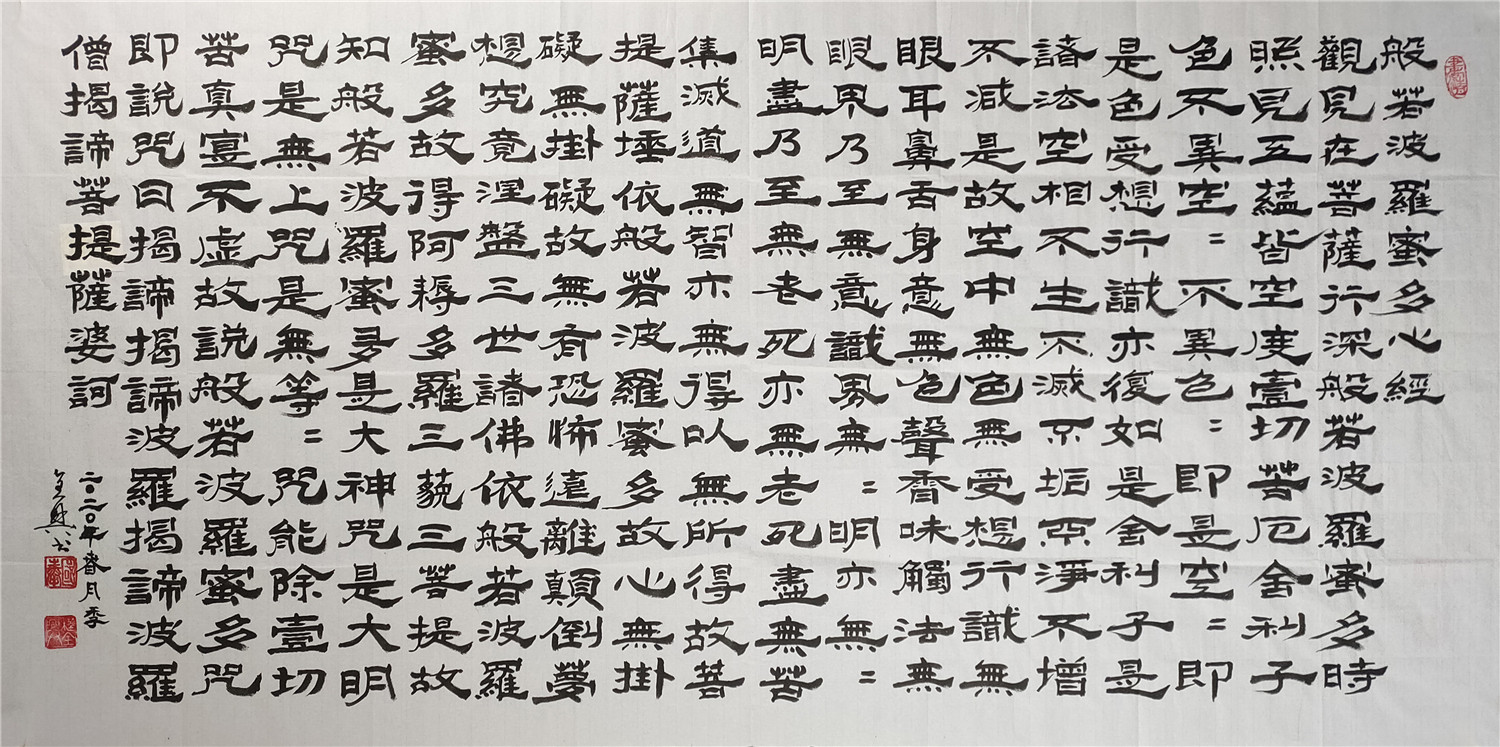 般若波羅蜜多心經
觀見在菩薩行深般若波羅蜜多時
照見五蘊皆空度壹切苦厄舍利子
色不異空=不異色=即是空=即
是色受想行識亦復如是舍利子是
諸法空相不生不滅不垢不淨不增
不減是故空中無色無受想行識無
眼耳鼻舌身意無色聲香味觸法無
眼界乃至無意識界無=明亦無=
明盡乃至無老死亦無老死盡無苦
集滅道無智亦無得以無所得故菩
提薩埵依般若波羅蜜多故心無掛
礙無掛礙故無有恐怖遠離顛倒夢
想究竟涅盤三世諸佛依般若波羅
蜜多故得阿耨多羅三藐三菩提故
知般若波羅蜜多是大神咒是大明
咒是無上咒是無等=咒能除壹切
苦真實不虛故說般若波羅蜜多咒
即說咒曰揭諦揭諦波羅揭諦波羅
僧揭諦菩提薩婆訶
二〇二〇年春月季